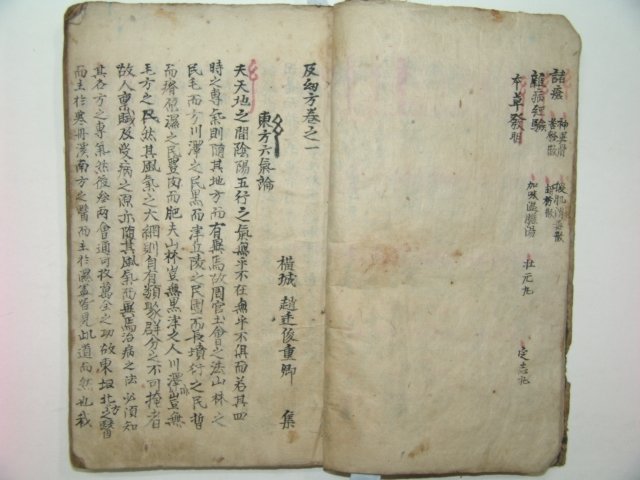 諸瘧
雜病經驗
本草發明
加味溫膽湯
壯元丸
定志丸
及幼方卷之一
東方六氣論
橫城 趙廷俊重卿 集
夫天地之間陰陽五行之氣無乎不在無乎不俱而若其四
時之專氣則隨其地方而有無焉故周官土會之法山林之
民毛而方川澤之民黑而津丘陵之民團而長墳衍之民晢
而瘠原濕之民豊肉而肥夫山林豈無黑津之人川澤豈無
毛方之民然其風氣之大綱則自有類聚群分之不可掩者
故人稟賦及受病之源亦隨其風氣而無焉治病之法必須知
其各方之專氣然後 會通可收萬全之功故東垣北方之醫
而主於寒丹溪南方之醫而主於濕盖皆見此道而然也我